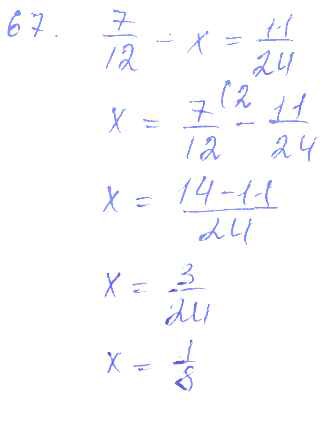 67. 7/12 - x = 11/24
x = 7/12 (2 - 11/24
x = 14-11/24
x = 3/24
x = 1/8